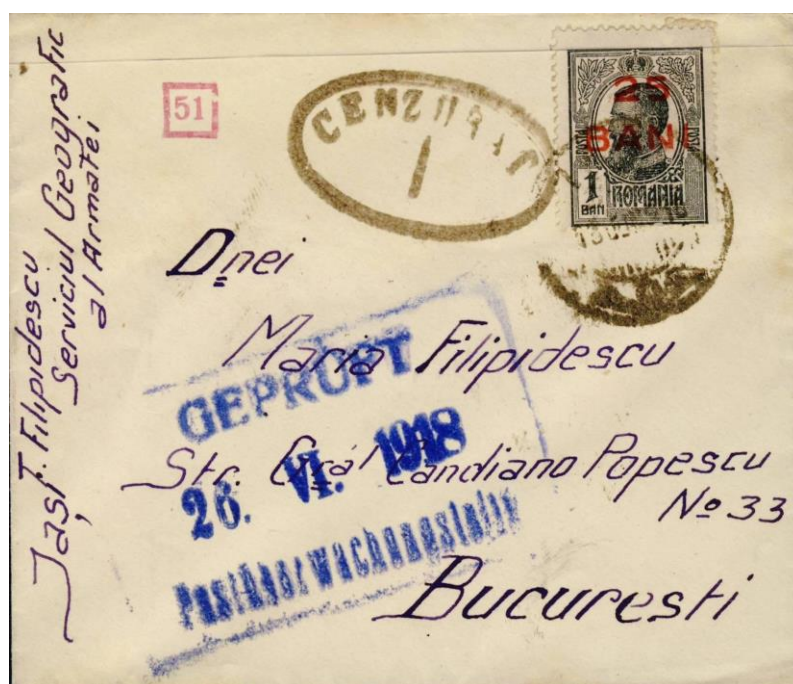 Iași T. Filipidescu
Serviciul Geografic
al Armatei
51
CENZURAT
1
25
BANI
POSTA
1
BAN
ROMANIA
Dnei
Maria Filipidescu
Str. Gral Candiano Popescu
No 33
București
GEPRÜFT
26. VI. 1918
Postüberwachungsstelle